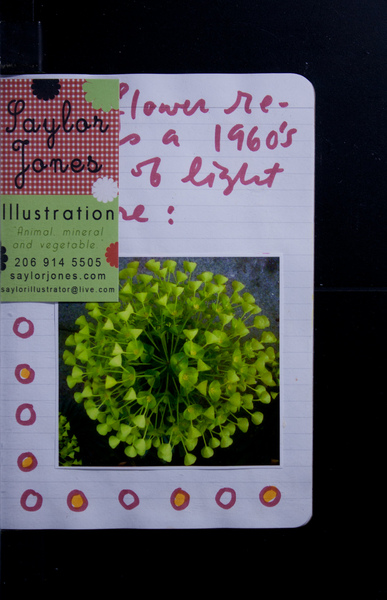 Saylor
Jones
Illustration
"Animal, mineral
and vegetable"
206 914 5505
saylorjones.com
saylorillustrator@live.com
flower re-
a 1960's
of light
: